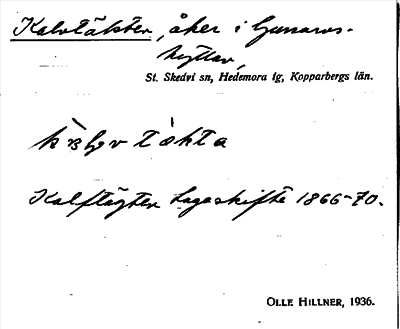 Kalvtäkten, åker i Gunnars-
hyttan,
St. Skedvi sn, Hedemora tg, Kopparbergs län.
Kalftägten Lagaskifte 1866-70.
OLLE HILLNER, 1936.